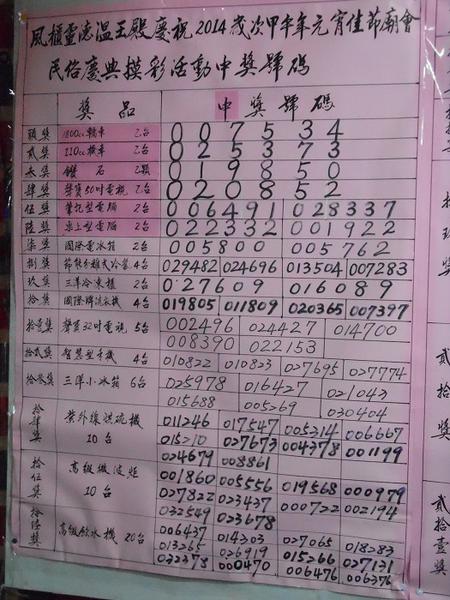 風櫃靈德溫王殿慶祝2014歲次甲午年元宵佳節廟會
民俗慶典摸彩活動中獎號碼
獎品 中獎號碼
頭獎 1800cc轎車 乙台 007534
貳獎 110cc機車 乙台 025373
叁獎 鑽石 乙顆 019850
肆獎 聲寶50吋電視 乙台 020852
伍獎 筆記型電腦 2台 006491 028337
陸獎 桌上型電腦 2台 022332 001922
柒獎 國際電冰箱 2台 005800 005762
捌獎 節能分離式冷氣 4台 029482 024696 013504 007283
玖獎 三洋冷凍櫃 2台 027609 016089
拾獎 國際牌洗衣機 4台 019805 011809 020365 007397
拾壹獎 聲寶32吋電視 5台 002496 024427 014700
008390 022153
拾貳獎 智慧型手機 4台 010822 010823 027695 027774
拾叁獎 三洋小冰箱 6台 025978 016427 021043
015688 005269 030404
拾肆獎 紫外線烘碗機 10台 011246 017547 005314 006667
015210 027673 004378 001199
024679 008861
拾伍獎 高級微波爐 10台 001860 005556 019568 000979
027822 023437 000722 002194
032549 023678
拾陸獎 高級飲水機 20台 006437 014303 027065 018283
013265 026919 015266 027131
022378 000470 006476 006376
獎
貳拾獎
貳拾壹獎